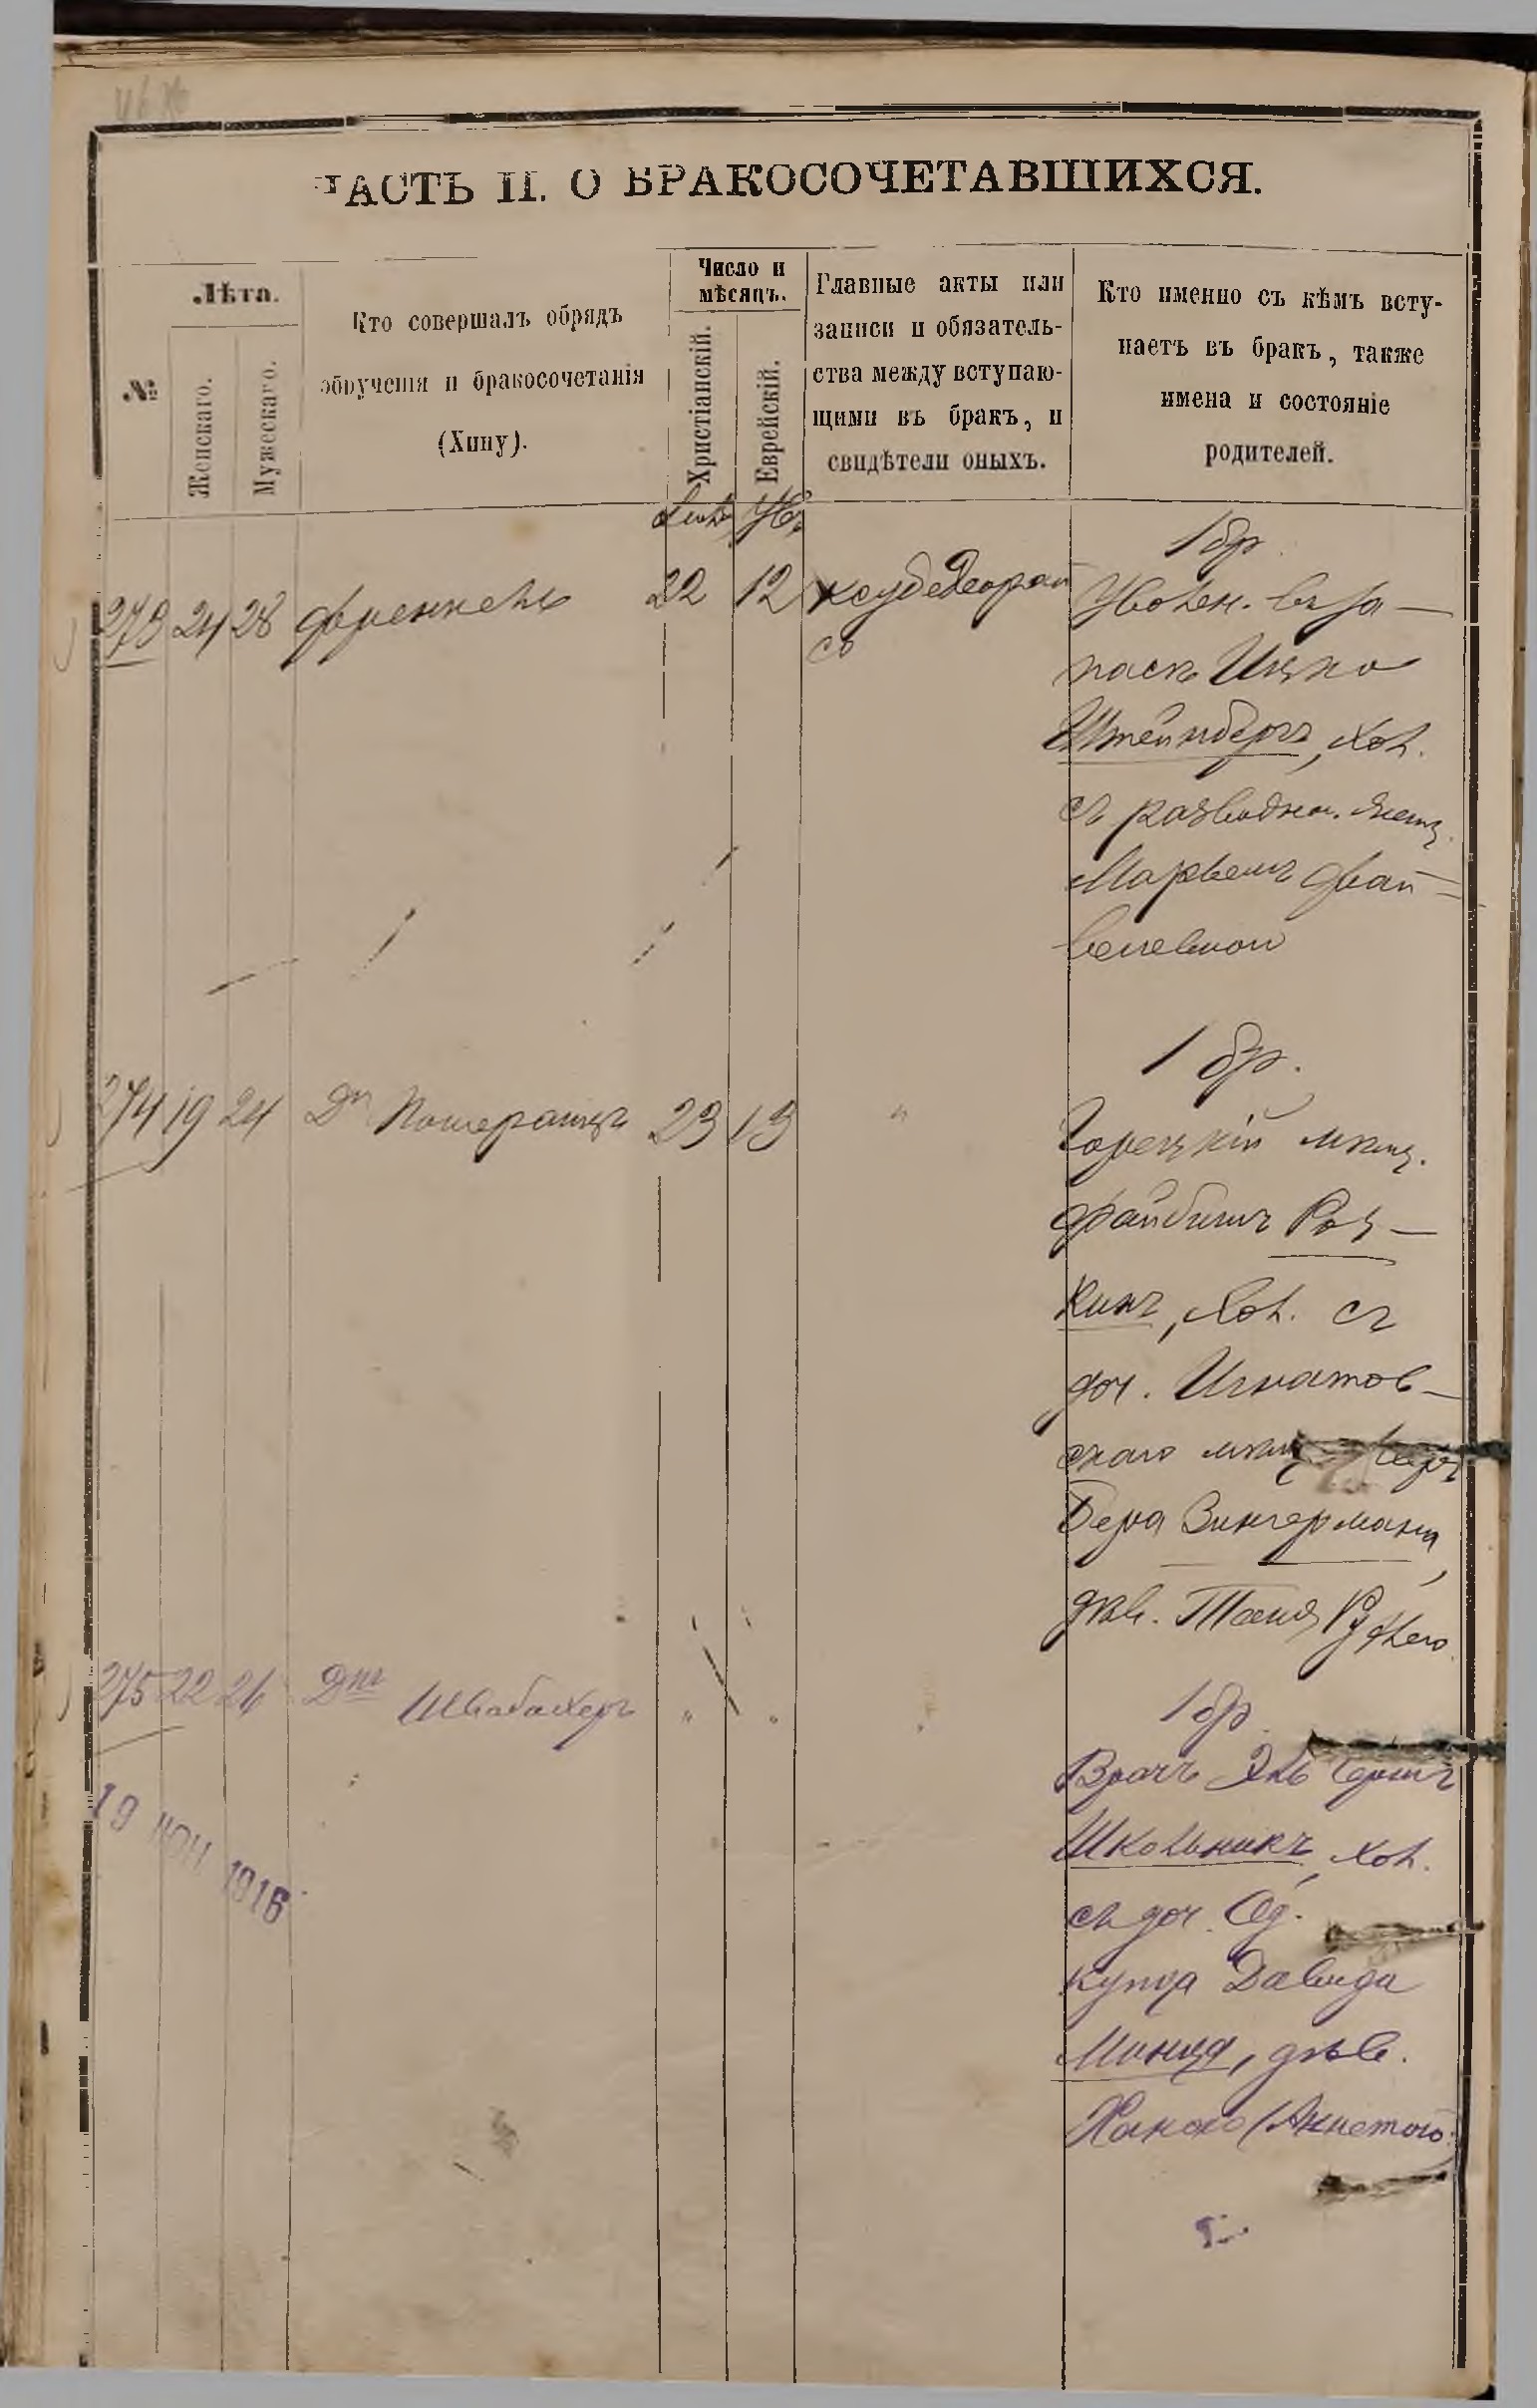 ЧАСТЬ II. О БРАКОСОЧЕТАВШИХСЯ.
№
Лѣта.
Женскаго.
Мужескаго.
Кто совершалъ обрядъ
обрученія и бракосочетанія
(Хипу).
Число и
мѣсяцъ.
Христіанскій.
Еврейскій.
Главные акты или
записи и обязатель-
ства между вступаю-
щими въ бракъ, и
свидѣтели оныхъ.
Кто именно съ кѣмъ всту-
паетъ въ бракъ, также
имена и состояніе
родителей.
273 24 28 Френкель 22 12
1 бр.
Уволен. въ за-
пасъ Ицко
Штейнбергъ, хол.
съ разводкою
274 19 24 Дн Померанцъ 23 13 "
1 бр.
Горецкій мѣщ.
Файбишъ Рыв-
кинъ, хол. съ
доч. Игнатов-
скаго мѣщ.
Бера Зингермана,
дѣв.
275 22 26 Дпг Швабахеръ " "
1 бр.
Врачъ
Школьникъ, хол.
съ доч. Од.
купца Давида
Минца, дѣв.
Ханою (Аннетою)
19 ИЮН 1916